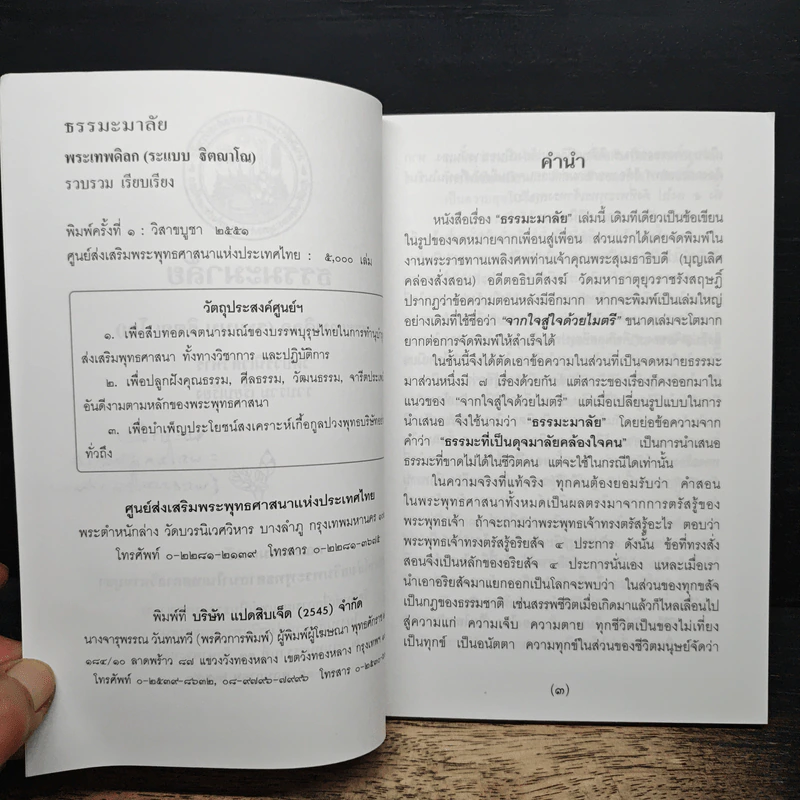 ธรรมะมาลัย
พระเทพดิลก (ระแบบ ฐิตญาโณ)
รวบรวม เรียบเรียง
พิมพ์ครั้งที่ ๑ : วิสาขบูชา ๒๕๕๑
ศูนย์ส่งเสริมพระพุทธศาสนาแห่งประเทศไทย : ๕,๐๐๐ เล่ม
วัตถุประสงค์ศูนย์ฯ
๑. เพื่อสืบทอดเจตนารมณ์ของบรรพบุรุษไทยในการทำนุบำรุง
ส่งเสริมพุทธศาสนา ทั้งทางวิชาการ และปฏิบัติการ
๒. เพื่อปลูกฝังคุณธรรม, ศีลธรรม, วัฒนธรรม, จารีตประเพณี
อันดีงามตามหลักของพระพุทธศาสนา
๓. เพื่อบำเพ็ญประโยชน์สงเคราะห์เกื้อกูลปวงพุทธบริษัท
ทั่วถึง
ศูนย์ส่งเสริมพระพุทธศาสนาแห่งประเทศไทย
พระตำหนักล่าง วัดบวรนิเวศวิหาร บางลำภู กรุงเทพมหานคร
โทรศัพท์ ๐-๒๒๘๑-๒๑๓๙ โทรสาร ๐-๒๒๘๑-๓๖๓๕
พิมพ์ที่ บริษัท แปดสิบเจ็ด (2545) จำกัด
นางจารุพรรณ วันทนทวี (พรศิวการพิมพ์) ผู้พิมพ์ผู้โฆษณา พุทธศักราช
๑๘๔/๑๐ ลาดพร้าว ๘๗ แขวงวังทองหลาง เขตวังทองหลาง กรุงเทพฯ
โทรศัพท์ ๐-๒๕๓๙-๘๖๓๒, ๐๘-๙๗๙๖-๗๙๙๖ โทรสาร
คำนำ
หนังสือเรื่อง “ธรรมะมาลัย” เล่มนี้ เดิมทีเดียวเป็นข้อเขียน
ในรูปของจดหมายจากเพื่อนสู่เพื่อน ส่วนแรกได้เคยจัดพิมพ์ใน
งานพระราชทานเพลิงศพท่านเจ้าคุณพระสุเมธาธิบดี (บุญเลิศ
คล่องสั่งสอน) อดีตอธิบดีสงฆ์ วัดมหาธาตุยุวราชรังสฤษฎิ์
ปรากฏว่าข้อความตอนหลังมีอีกมาก หากจะพิมพ์เป็นเล่มใหญ่
อย่างเดิมที่ใช้ชื่อว่า “จากใจสู่ใจด้วยไมตรี” ขนาดเล่มจะโตมาก
ยากต่อการจัดพิมพ์ให้สำเร็จได้
ในชั้นนี้จึงได้ตัดเอาข้อความในส่วนที่เป็นจดหมายธรรมะ
มาส่วนหนึ่งมี ๗ เรื่องด้วยกัน แต่สาระของเรื่องก็คงออกมาใน
แนวของ “จากใจสู่ใจด้วยไมตรี” แต่เมื่อเปลี่ยนรูปแบบในการ
นำเสนอ จึงใช้นามว่า “ธรรมะมาลัย” โดยย่อข้อความจาก
คำว่า “ธรรมะที่เป็นดุจมาลัยคล้องใจคน” เป็นการนำเสนอ
ธรรมะที่ขาดไม่ได้ในชีวิตคน แต่จะใช้ในกรณีใดเท่านั้น
ในความจริงที่แท้จริง ทุกคนต้องยอมรับว่า คำสอน
ในพระพุทธศาสนาทั้งหมดเป็นผลตรงมาจากการตรัสรู้ของ
พระพุทธเจ้า ถ้าจะถามว่าพระพุทธเจ้าทรงตรัสรู้อะไร ตอบว่า
พระพุทธเจ้าทรงตรัสรู้อริยสัจ ๔ ประการ ดังนั้น ข้อที่ทรงสั่ง
สอนจึงเป็นหลักของอริยสัจ ๔ ประการนั่นเอง แหละเมื่อเรา
นำเอาอริยสัจมาแยกออกเป็นโลกจะพบว่า ในส่วนของทุกขสัจ
เป็นกฎของธรรมชาติ เช่นสรรพชีวิตเมื่อเกิดมาแล้วก็ไหลเลื่อนไป
สู่ความแก่ ความเจ็บ ความตาย ทุกชีวิตเป็นของไม่เที่ยง
เป็นทุกข์ เป็นอนัตตา ความทุกข์ในส่วนของชีวิตมนุษย์จัดว่า
(๓)